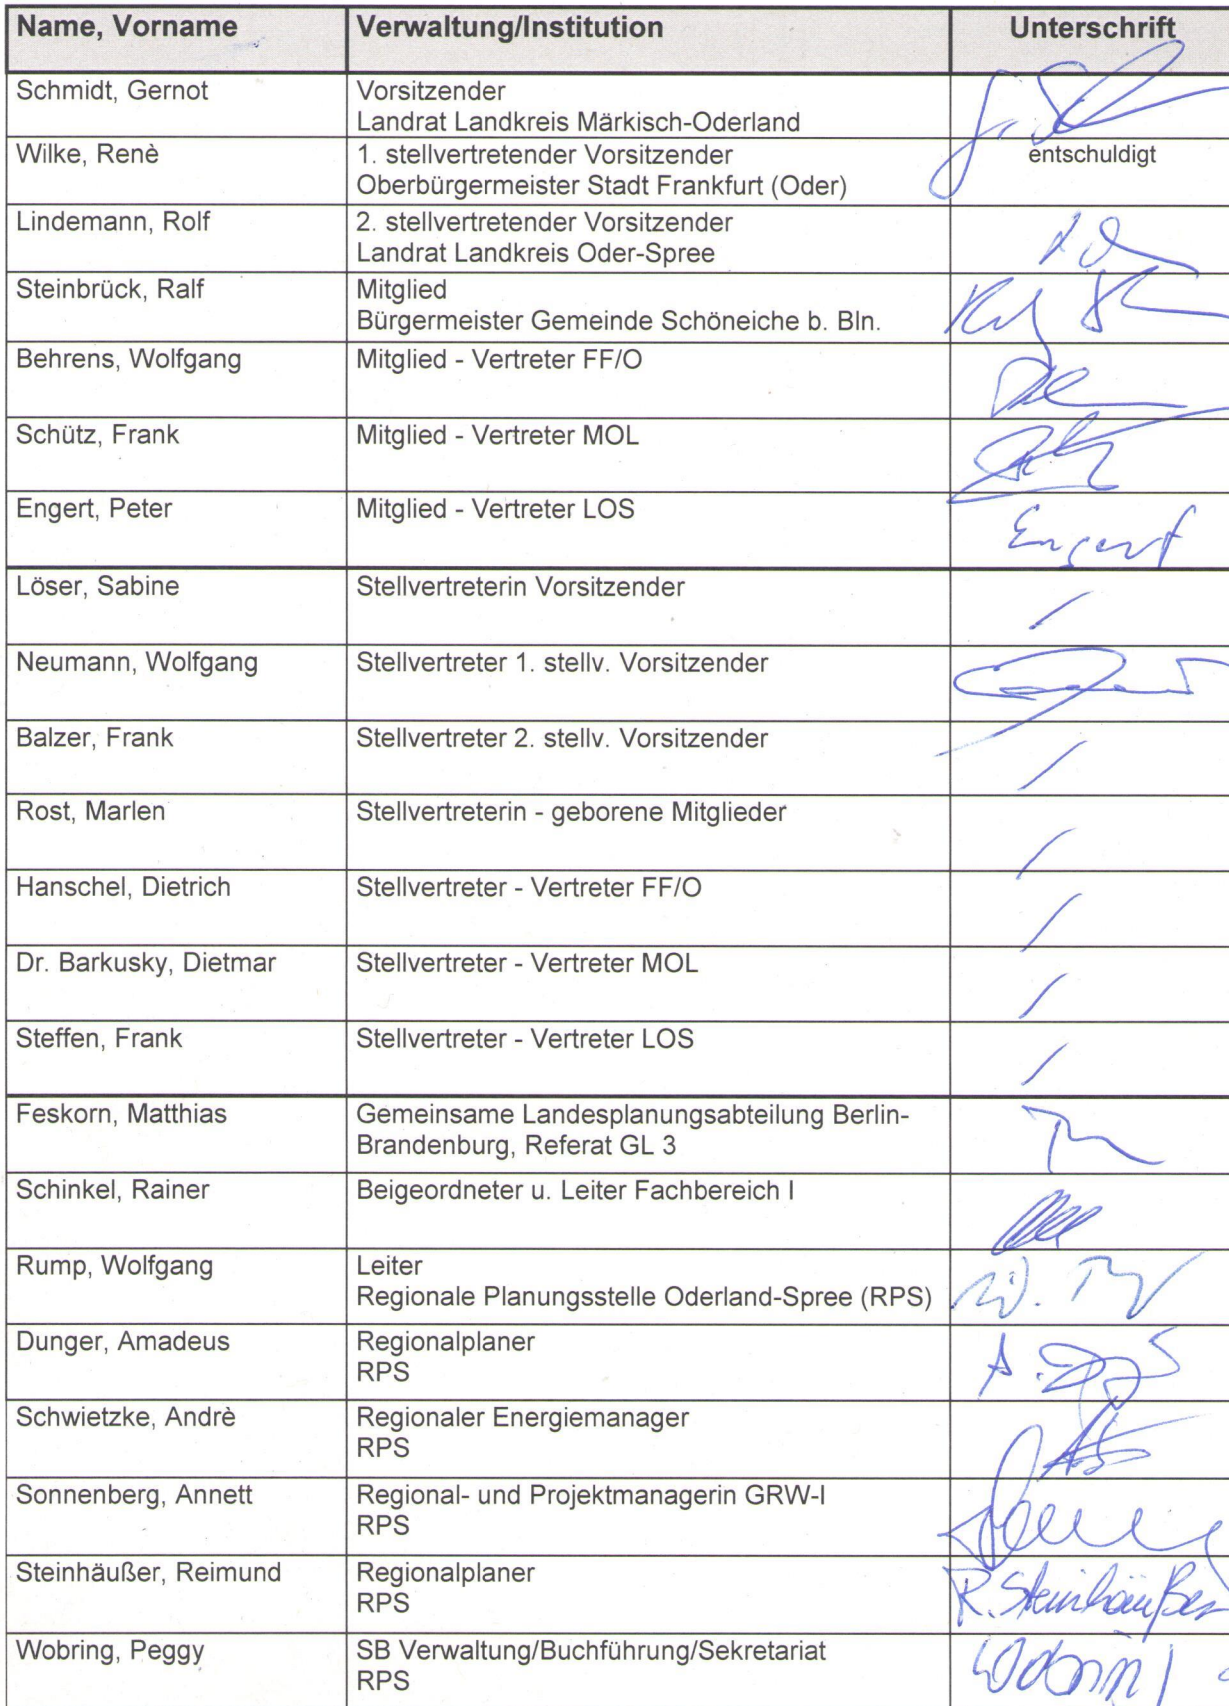 Name, Vorname Verwaltung/Institution Unterschrift
Schmidt, Gernot Vorsitzender
Landrat Landkreis Märkisch-Oderland
Wilke, Renè 1. stellvertretender Vorsitzender entschuldigt
Oberbürgermeister Stadt Frankfurt (Oder)
Lindemann, Rolf 2. stellvertretender Vorsitzender
Landrat Landkreis Oder-Spree
Steinbrück, Ralf Mitglied
Bürgermeister Gemeinde Schöneiche b. Bln.
Behrens, Wolfgang Mitglied - Vertreter FF/O
Schütz, Frank Mitglied - Vertreter MOL
Engert, Peter Mitglied - Vertreter LOS
Engert
Löser, Sabine Stellvertreterin Vorsitzender
Neumann, Wolfgang Stellvertreter 1. stellv. Vorsitzender
Balzer, Frank Stellvertreter 2. stellv. Vorsitzender
Rost, Marlen Stellvertreterin - geborene Mitglieder
Hanschel, Dietrich Stellvertreter - Vertreter FF/O
Dr. Barkusky, Dietmar Stellvertreter - Vertreter MOL
Steffen, Frank Stellvertreter - Vertreter LOS
Feskorn, Matthias Gemeinsame Landesplanungsabteilung Berlin-
Brandenburg, Referat GL 3
Schinkel, Rainer Beigeordneter u. Leiter Fachbereich I
Rump, Wolfgang Leiter
Regionale Planungsstelle Oderland-Spree (RPS)
Dunger, Amadeus Regionalplaner
RPS
Schwietzke, Andrè Regionaler Energiemanager
RPS
Sonnenberg, Annett Regional- und Projektmanagerin GRW-I
RPS
Steinhäußer, Reimund Regionalplaner
RPS R. Steinhäußer
Wobring, Peggy SB Verwaltung/Buchführung/Sekretariat
RPS